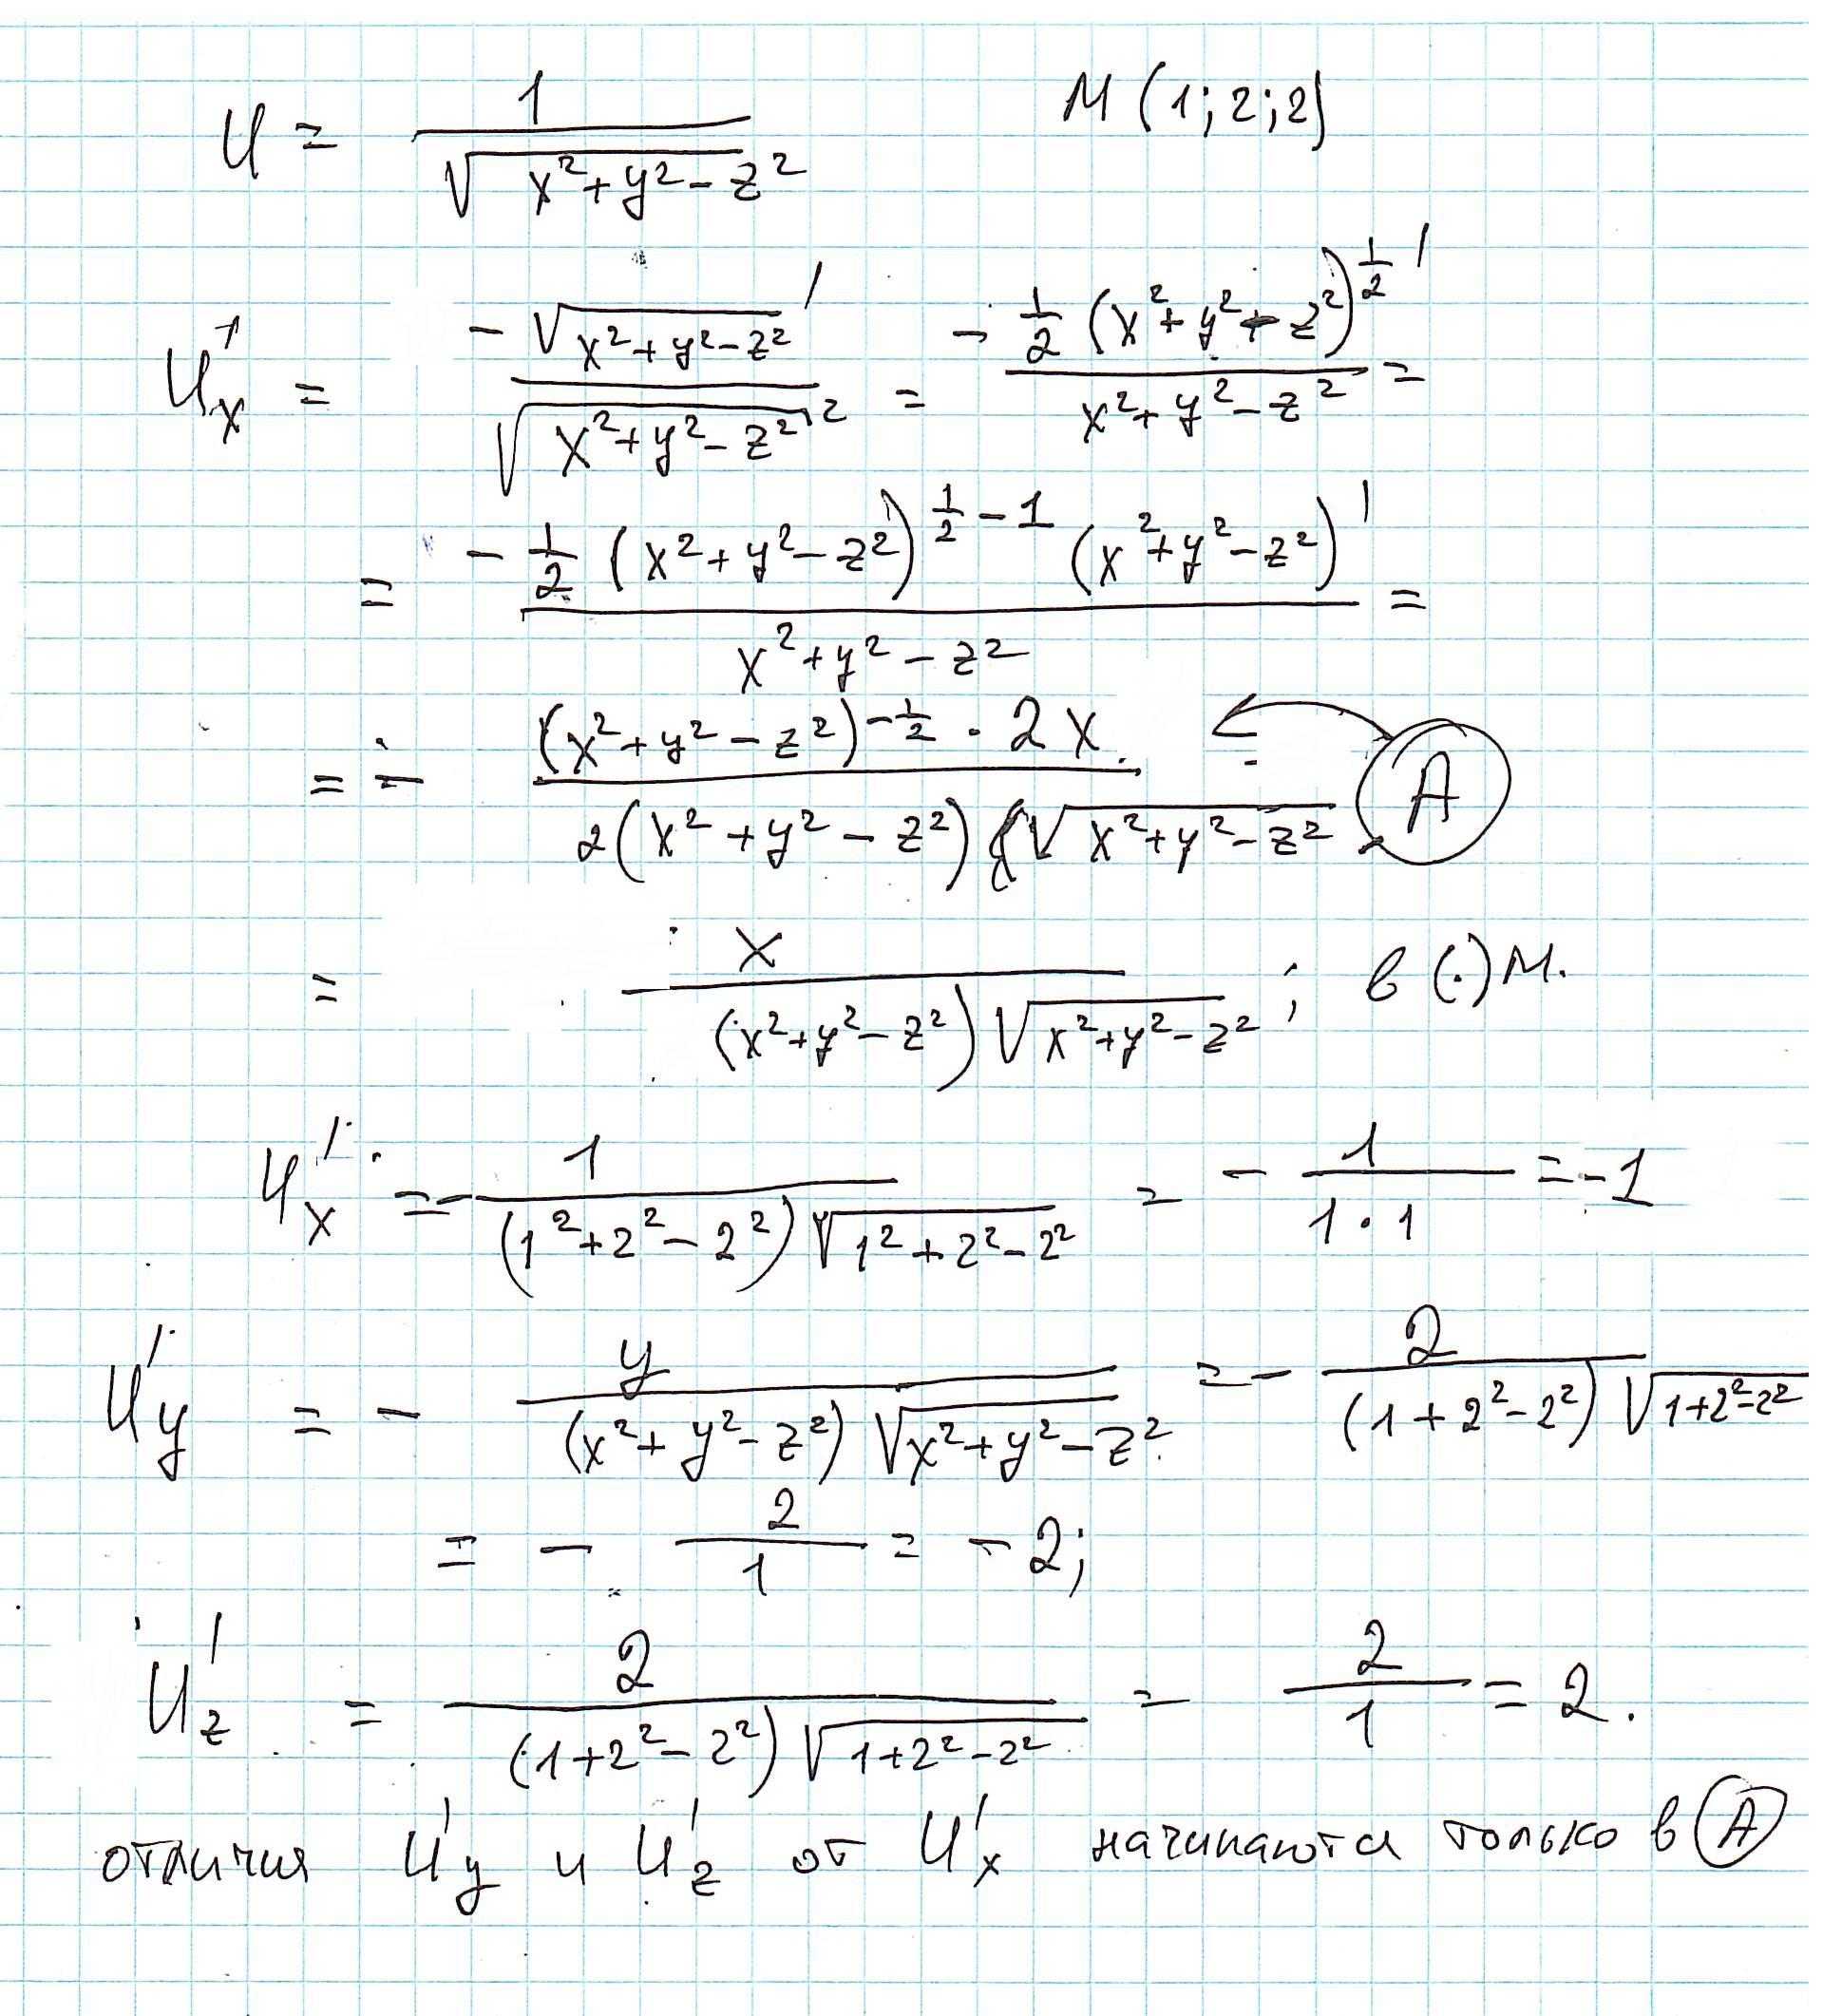 U = 1 / √(x² + y² - z²) M (1; 2; 2)
U'x = -√(x² + y² - z²)' / √(x² + y² - z²)² = - 1/2 (x² + y² - z²)^(1/2)' / (x² + y² - z²) =
= - 1/2 (x² + y² - z²)^(1/2 - 1) (x² + y² - z²)' / (x² + y² - z²) =
= - (x² + y² - z²)^(-1/2) · 2x / 2(x² + y² - z²) √(x² + y² - z²) A
= x / (x² + y² - z²) √(x² + y² - z²) ; в (·) M.
U'x = - 1 / (1² + 2² - 2²) √(1² + 2² - 2²) = - 1 / (1 · 1) = -1
U'y = - y / (x² + y² - z²) √(x² + y² - z²) = - 2 / (1 + 2² - 2²) √(1 + 2² - 2²)
= - 2 / 1 = - 2;
U'z = 2 / (1 + 2² - 2²) √(1 + 2² - 2²) = 2 / 1 = 2.
отличия U'y и U'z от U'x начинаются только в A